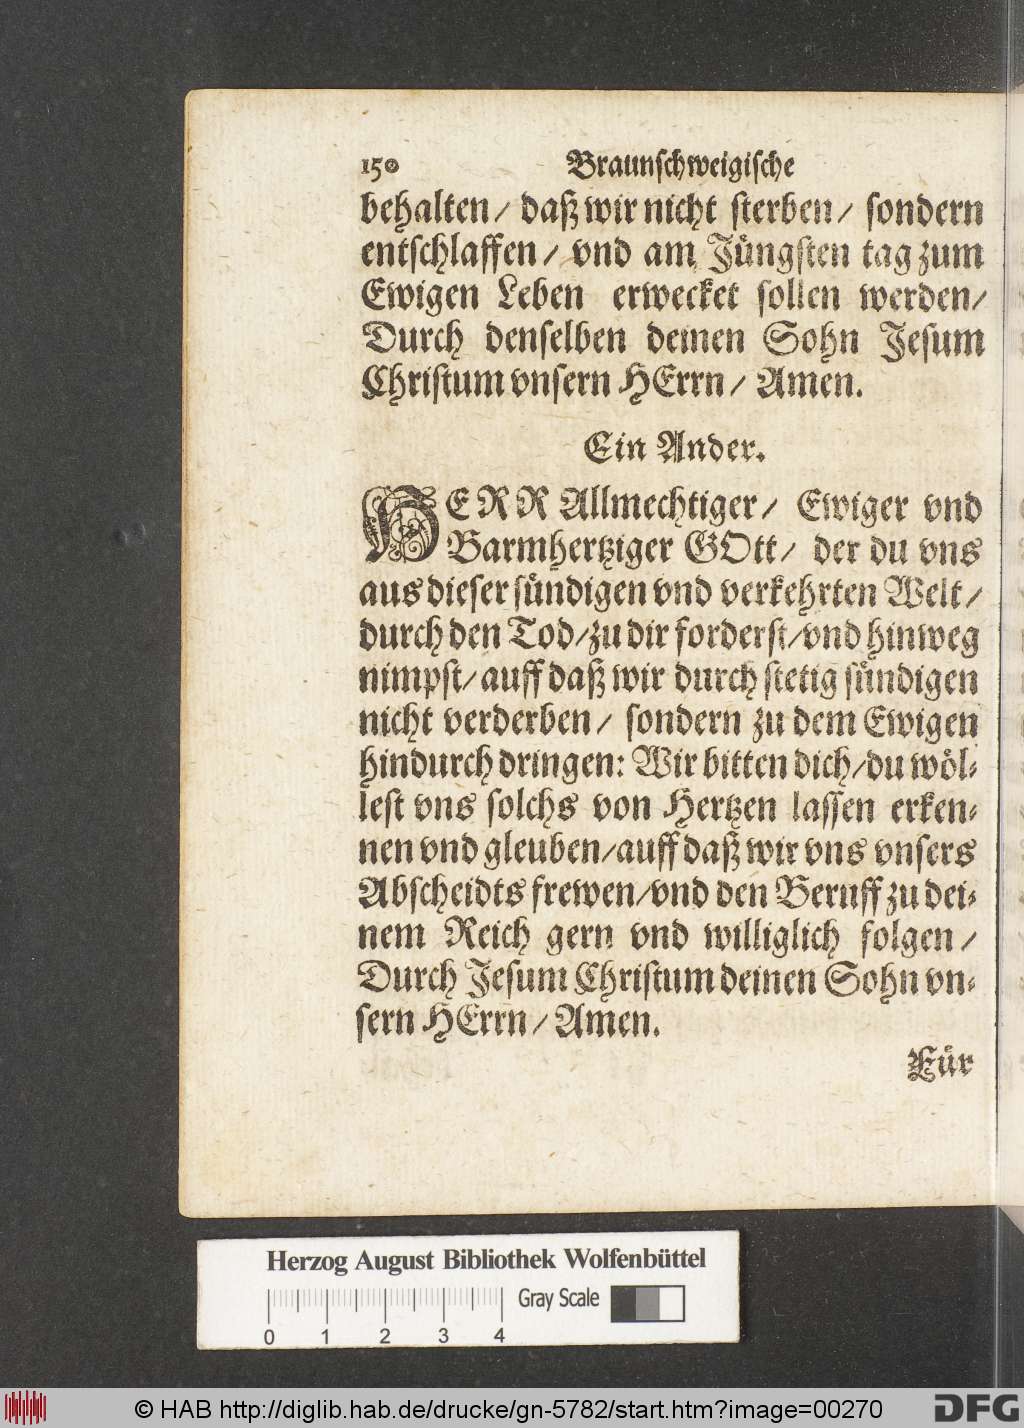 150 Braunschweigische
behalten / daß wir nicht sterben / sondern
entschlaffen / vnd am Jüngsten tag zum
Ewigen Leben erwecket sollen werden /
Durch denselben deinen Sohn Jesum
Christum vnsern HErrn / Amen.
Ein Ander.
HERR Allmechtiger / Ewiger vnd
Barmhertziger GOtt / der du vns
aus dieser sündigen vnd verkehrten Welt /
durch den Tod / zu dir forderst / vnd hinweg
nimpst / auff daß wir durch stetig sündigen
nicht verderben / sondern zu dem Ewigen
hindurch dringen: Wir bitten dich / du wöl-
lest vns solchs von Hertzen lassen erken-
nen vnd gleuben / auff daß wir vns vnsers
Abscheidts frewen / vnd den Beruff zu dei-
nem Reich gern vnd williglich folgen /
Durch Jesum Christum deinen Sohn vn-
sern HErrn / Amen.
Für
Herzog August Bibliothek Wolfenbüttel
Gray Scale
0 1 2 3 4
© HAB http://diglib.hab.de/drucke/gn-5782/start.htm?image=00270
DFG